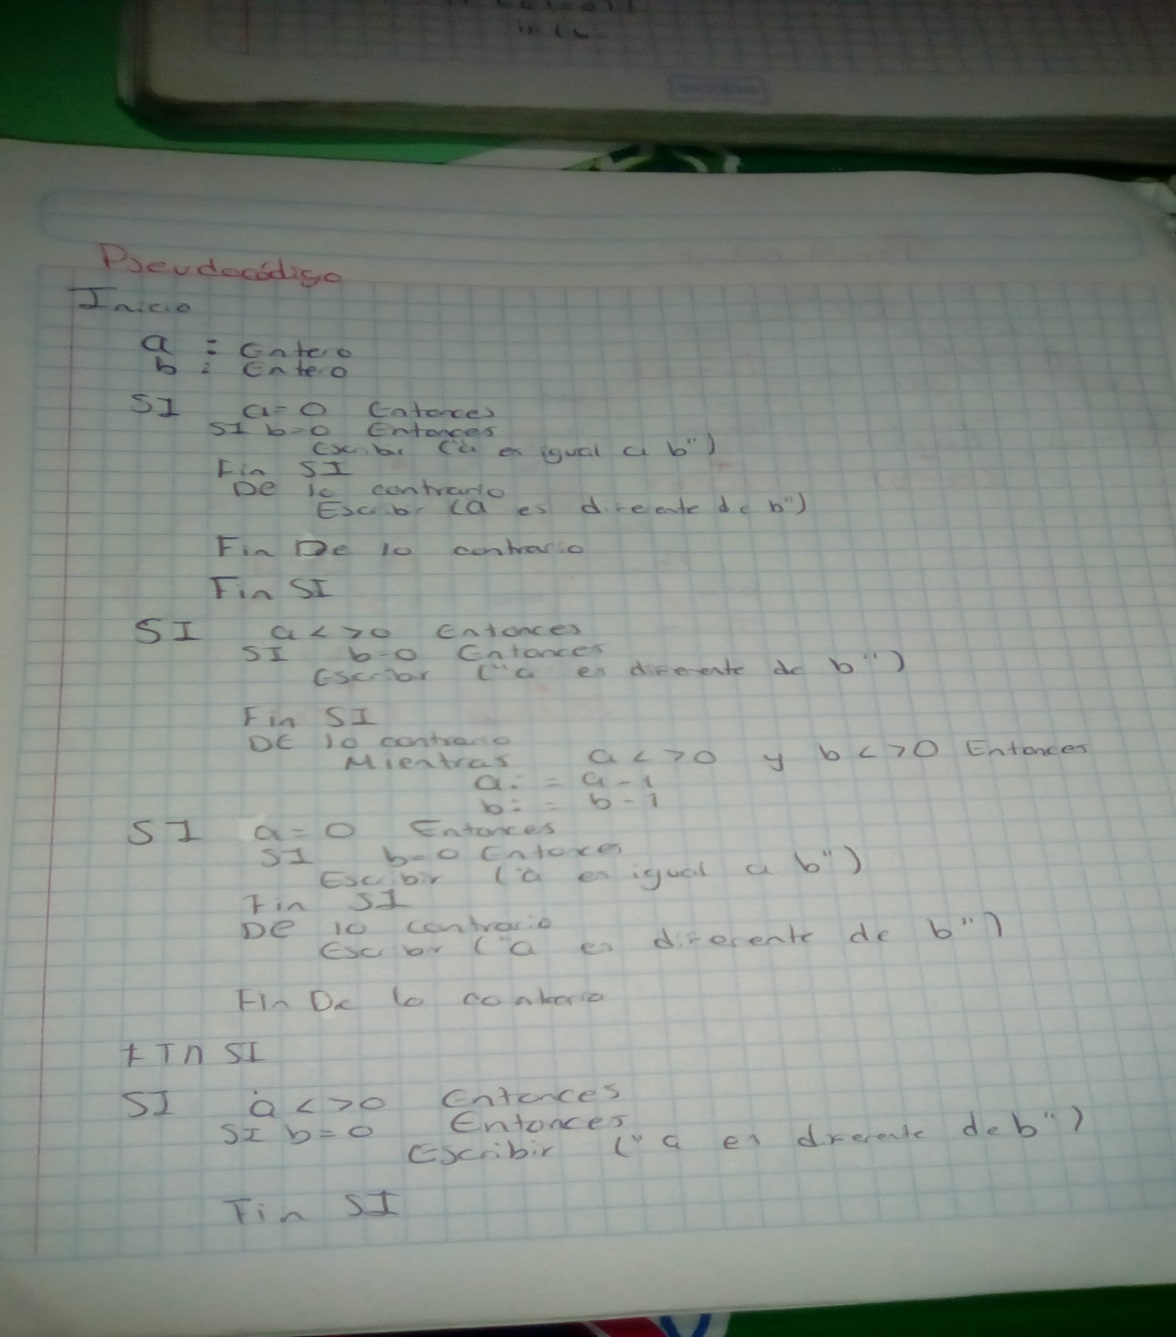 Pseudocódigo
Inicio
a : Entero
b : Entero
SI a=0 Entonces
SI b=0 Entonces
Escribir ("a es igual a b")
Fin SI
De lo contrario
Escribir (a es diferente de b")
Fin De lo contrario
Fin SI
SI a<>0 Entonces
SI b=0 Entonces
Escribir ("a es diferente de b")
Fin SI
DE lo contrario
Mientras a<>0 y b<>0 Entonces
a:= a-1
b:= b-1
SI a=0 Entonces
SI b=0 Entonces
Escribir ("a es igual a b")
Fin SI
De lo contrario
Escribir ("a es diferente de b")
Fin De lo contrario
FIn SI
SI a<>0 Entonces
SI b=0 Entonces
Escribir ("a es diferente de b")
Fin SI